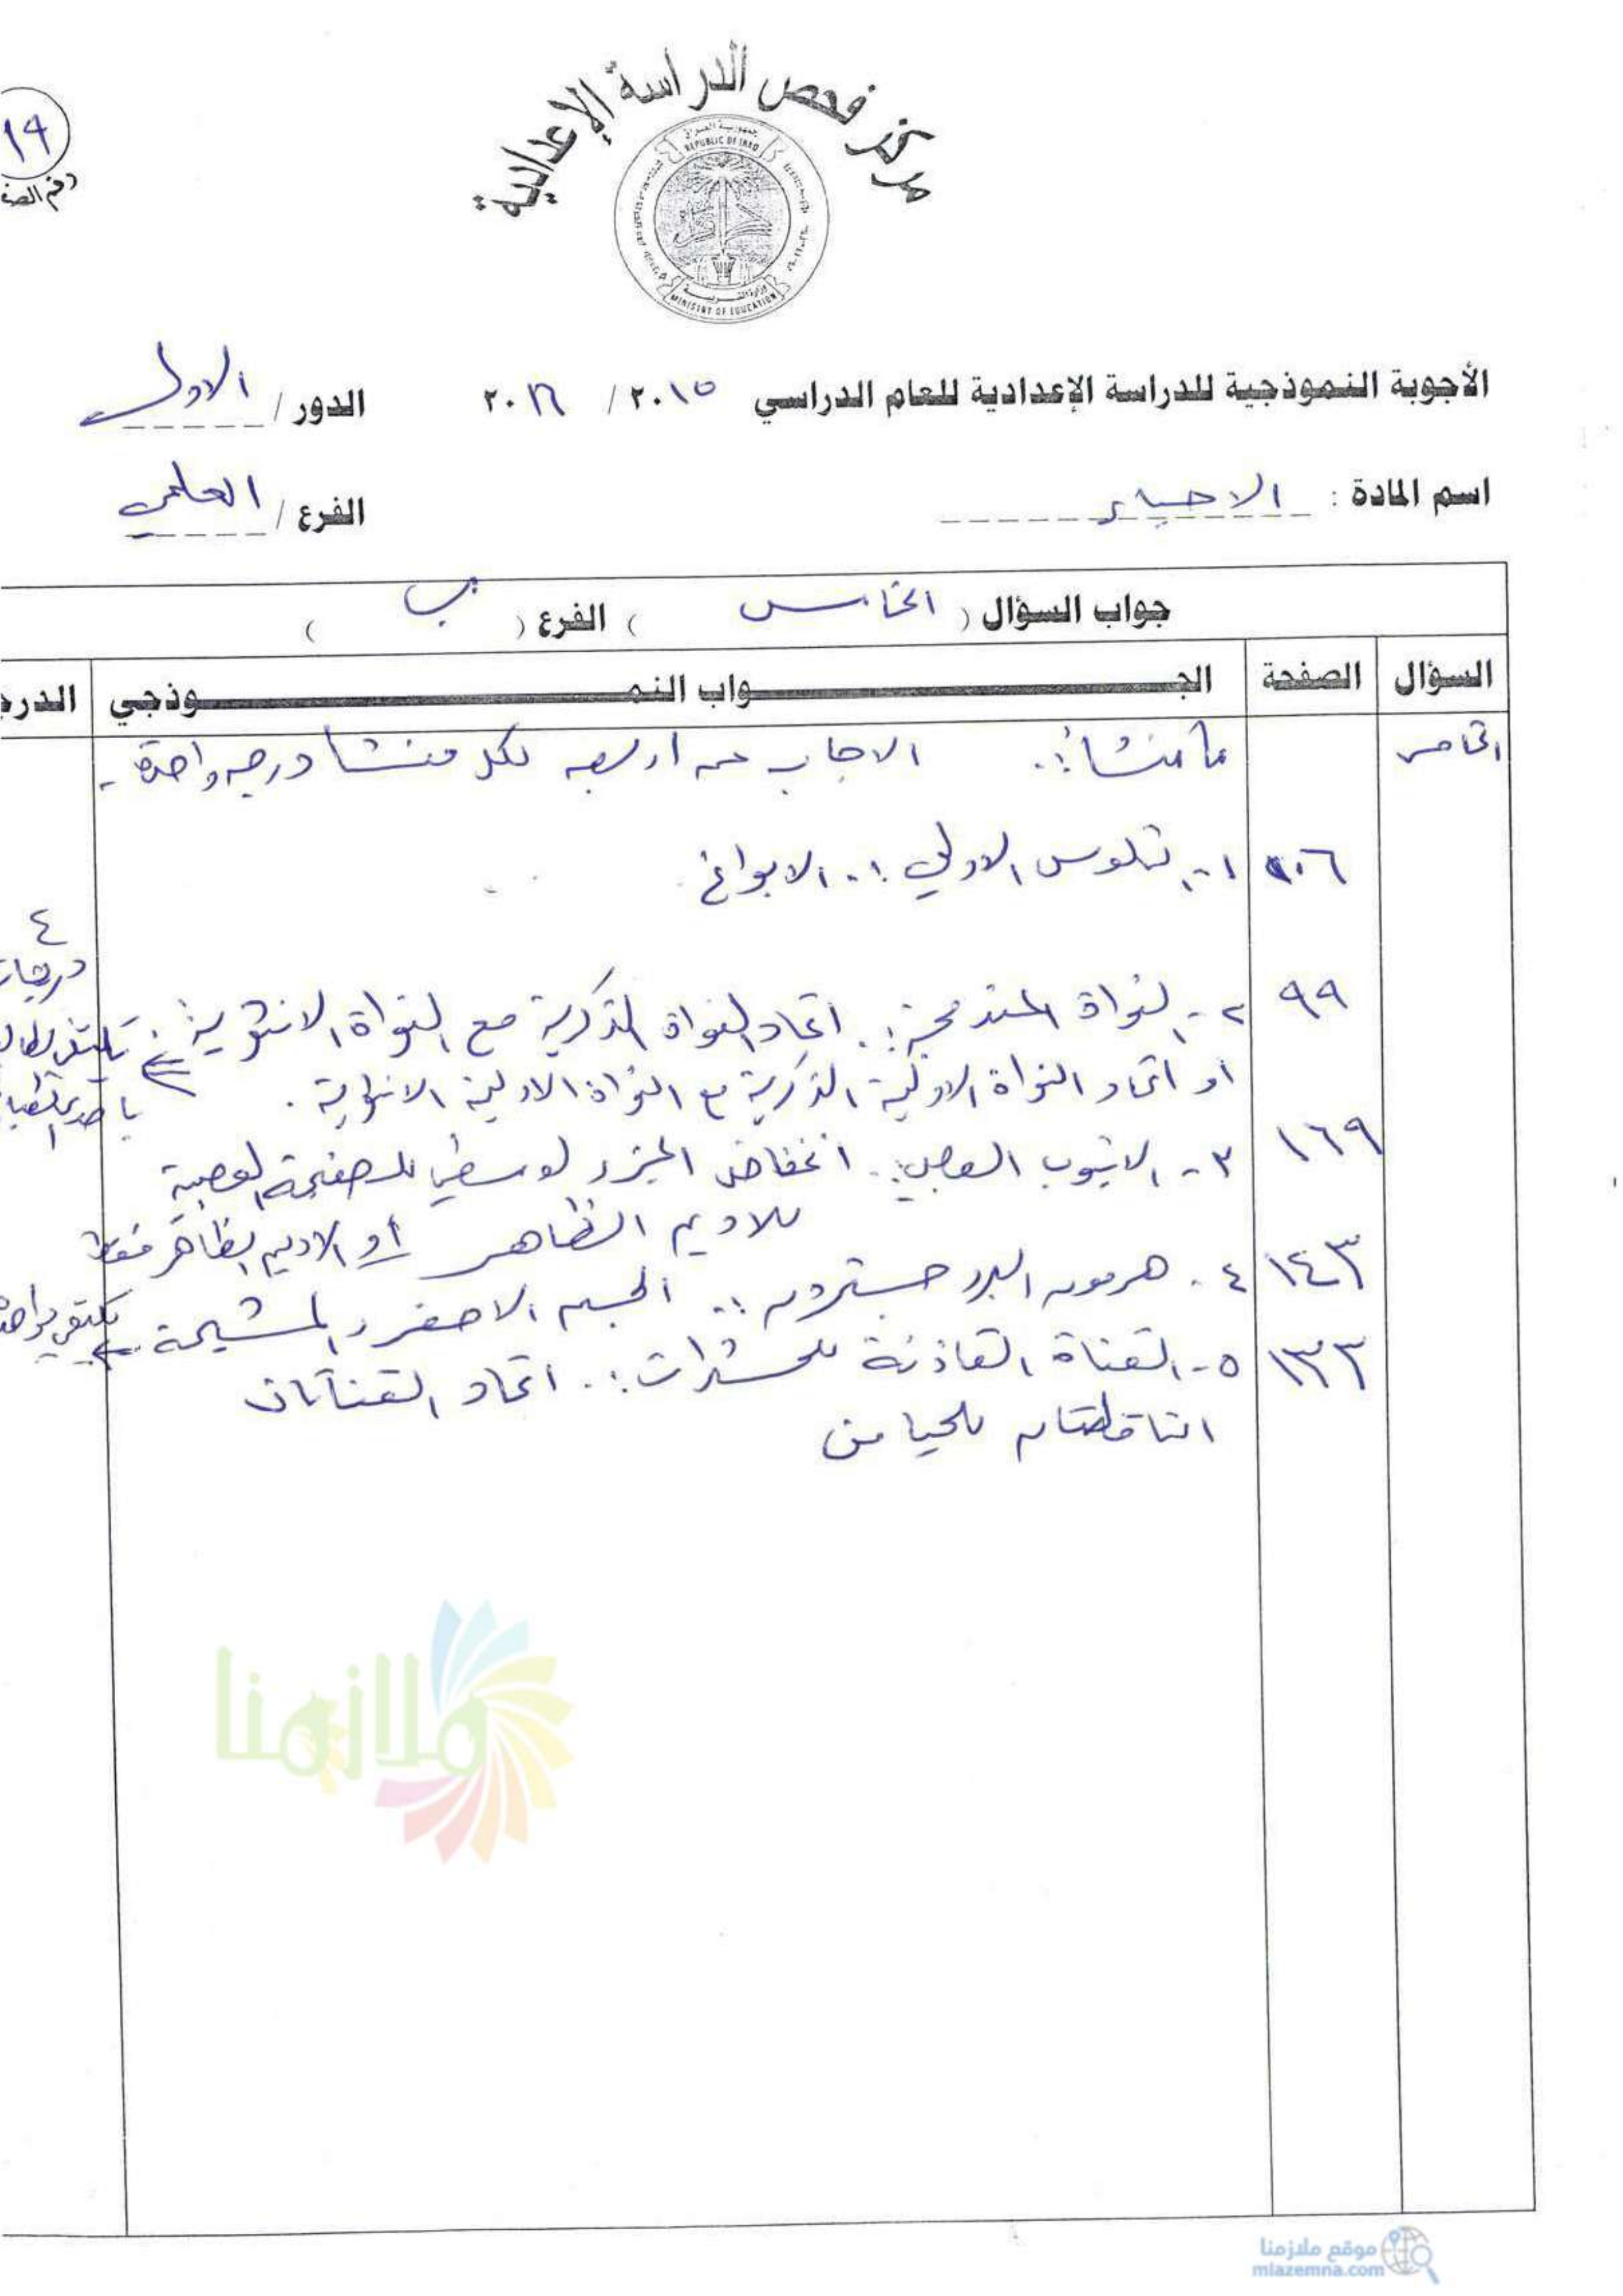 مركز فحص الدراسة الإعدادية
جمهورية العراق
REPUBLIC OF IRAQ
وزارة التربية
MINISTRY OF EDUCATION
١٩
رقم الصف
الأجوبة النموذجية للدراسة الإعدادية للعام الدراسي ٢٠١٥ / ٢٠١٦ الدور / الاول
اسم المادة : الاحياء الفرع / العلمي
جواب السؤال ( الخامس ) الفرع ( ب )
السؤال الصفحة الجـواب النمـوذجي الدرج
الخامس ما منشأ :. الاجابة عن اربعة لكل منشأ درجة واحدة -
١٠٦ ١- ثالوس الاولي :. الابواغ
٤
درجات
٩٩ ٢- النواة المندمجة :. اتحاد النواة الذكرية مع النواة الانثوية
او اتحاد النواة الاولية الذكرية مع النواة الاولية الانثوية .
١٦٩ ٣- الانبوب العصبي :. انخفاض الجزء الوسطي للصفيحة العصبية
للاديم الظاهر أو الاديم الظاهر فقط
١٤٣ ٤- هرمون البروجسترون :. الجسم الاصفر المشيمة يكتفي بواحدة
١٣٣ ٥- القناة القاذفة للحشرات :. اتحاد القناتان
الناقلتان للحيامن
ملازمنا
موقع ملازمنا
mlazemna.com